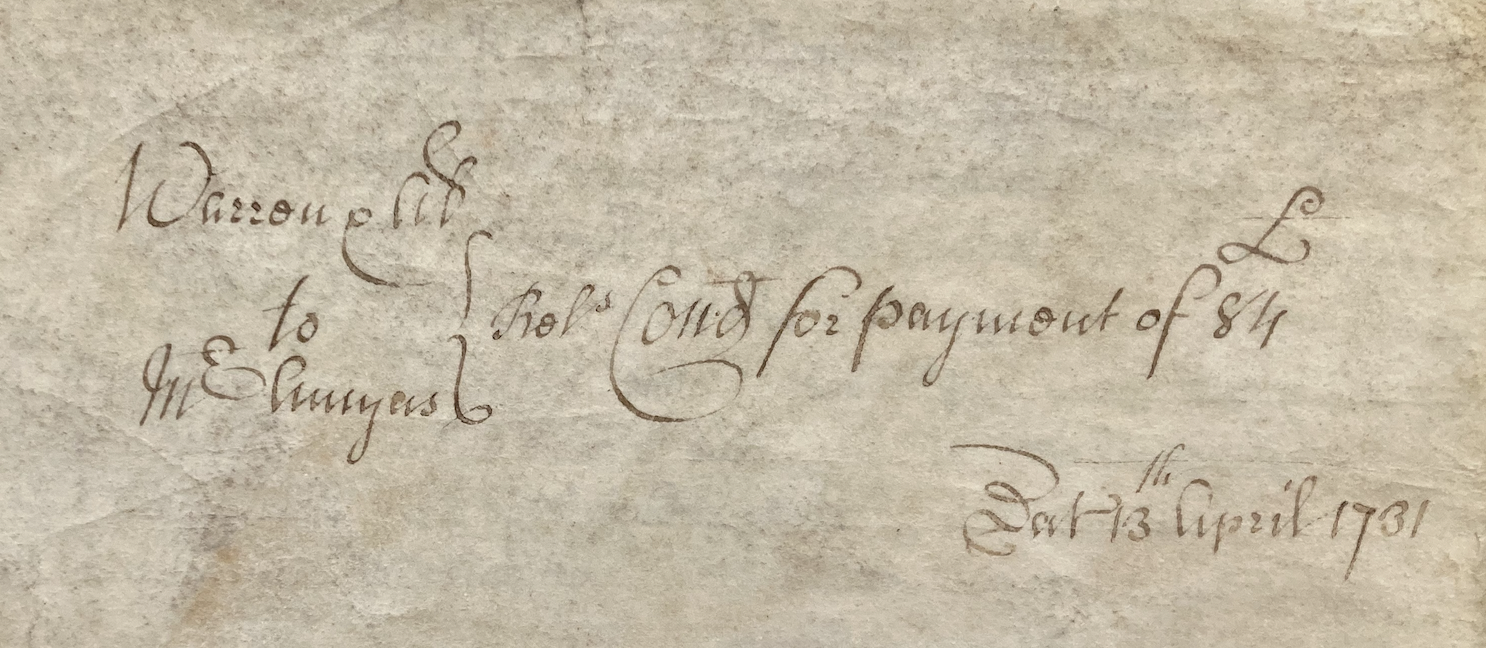 Warren & Ux
to
Mr Cunyas } Rels Cond for payment of £ 84
Dat 13th April 1731